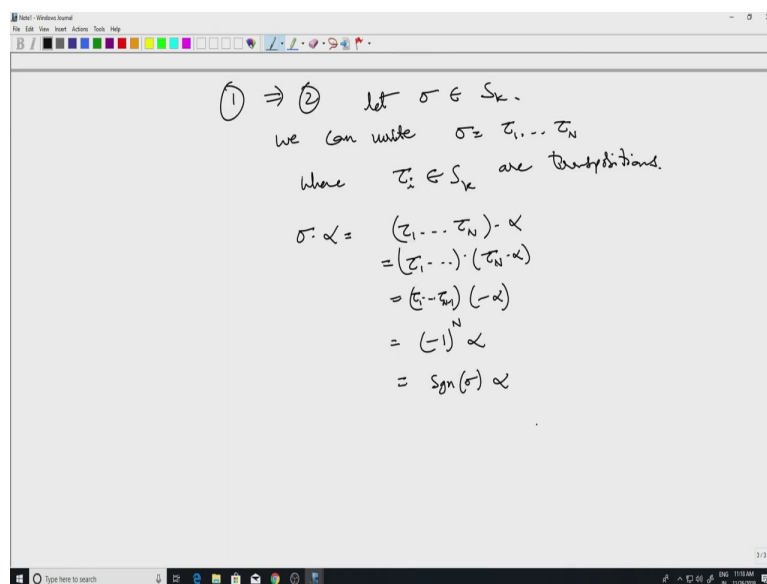 Note1 - Windows Journal
File Edit View Insert Actions Tools Help
① ⇒ ② let σ ∈ Sₖ.
we can write σ = τ₁ .... τ_N
where τᵢ ∈ Sₖ are transpositions.
σ·α = (τ₁ --- τ_N) - α
= (τ₁ - ..) · (τ_N·α)
= (τ₁ -- τ_{N-1}) (-α)
= (-1)^N α
= Sgn(σ) α
3/3
Type here to search
ENG 11:18 AM
IN